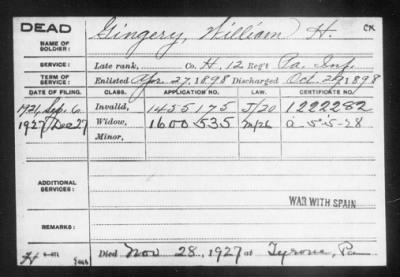 DEAD
Gingery, William H. CK
NAME OF SOLDIER:
SERVICE: Late rank, Co. H, 12 Reg't Pa. Inf.
TERM OF SERVICE: Enlisted Apr. 27, 1898 Discharged Oct. 29, 1898
DATE OF FILING. CLASS. APPLICATION NO. LAW. CERTIFICATE NO.
1921, Sep. 6 Invalid, 1455175 J/20 1222282
1927 Dec 27 Widow, 1600535 a 5-5-28
Minor,
ADDITIONAL SERVICES:
WAR WITH SPAIN
REMARKS:
Died Nov 28, 1927 at Tyrone, Pa